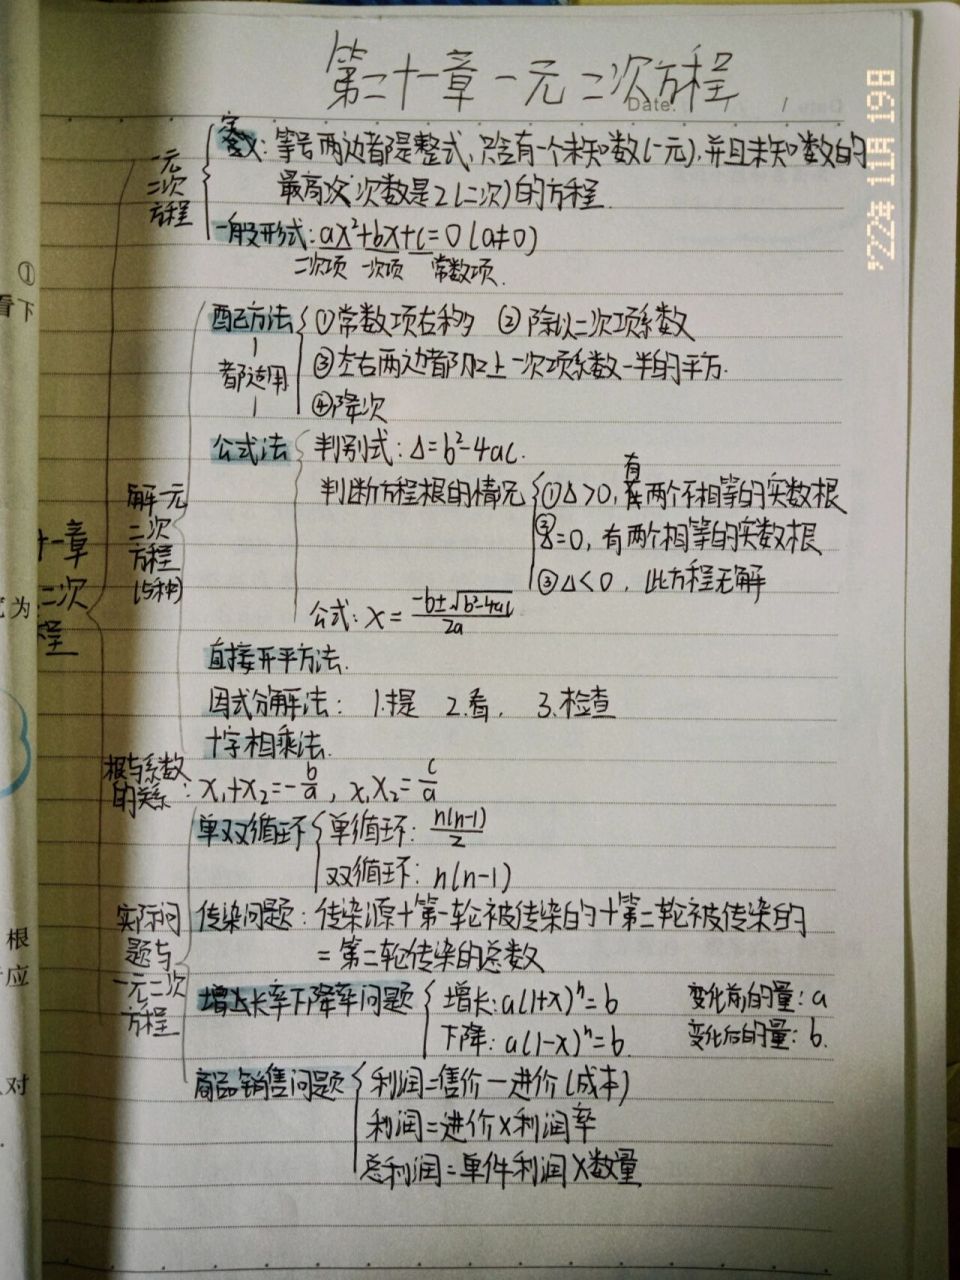 第二十一章 一元二次方程
Date: / /
'22年 11月 19日
一元
二次
方程
定义: 等号两边都是整式, 只含有一个未知数(一元), 并且未知数的
最高次次数是2(二次)的方程.
一般形式: ax²+bx+c=0 (a≠0)
二次项 一次项 常数项.
解一元
二次
方程
(5种)
配方法 ①常数项右移 ②除以二次项系数
都适用 ③左右两边都加上一次项系数一半的平方.
④降次
公式法 判别式: Δ=b²-4ac.
判断方程根的情况 ①Δ>0, 有两个不相等的实数根
②=0, 有两个相等的实数根
③Δ<0, 此方程无解
公式: x = (-b±√(b²-4ac))/2a
直接开平方法.
因式分解法: 1.提 2.看. 3.检查
十字相乘法.
根与系数
的关系: x₁+x₂=-b/a, x₁x₂=c/a
实际问
题与
一元二次
方程
单双循环 单循环: n(n-1)/2
双循环: n(n-1)
传染问题: 传染源+第一轮被传染的+第二轮被传染的
=第二轮传染的总数
增长率下降率问题 增长: a(1+x)ⁿ=b 变化前的量: a
下降: a(1-x)ⁿ=b. 变化后的量: b.
商品销售问题 利润=售价-进价(成本)
利润=进价×利润率
总利润=单件利润×数量
①
看下
十一章
二次
程
为
根
应
对